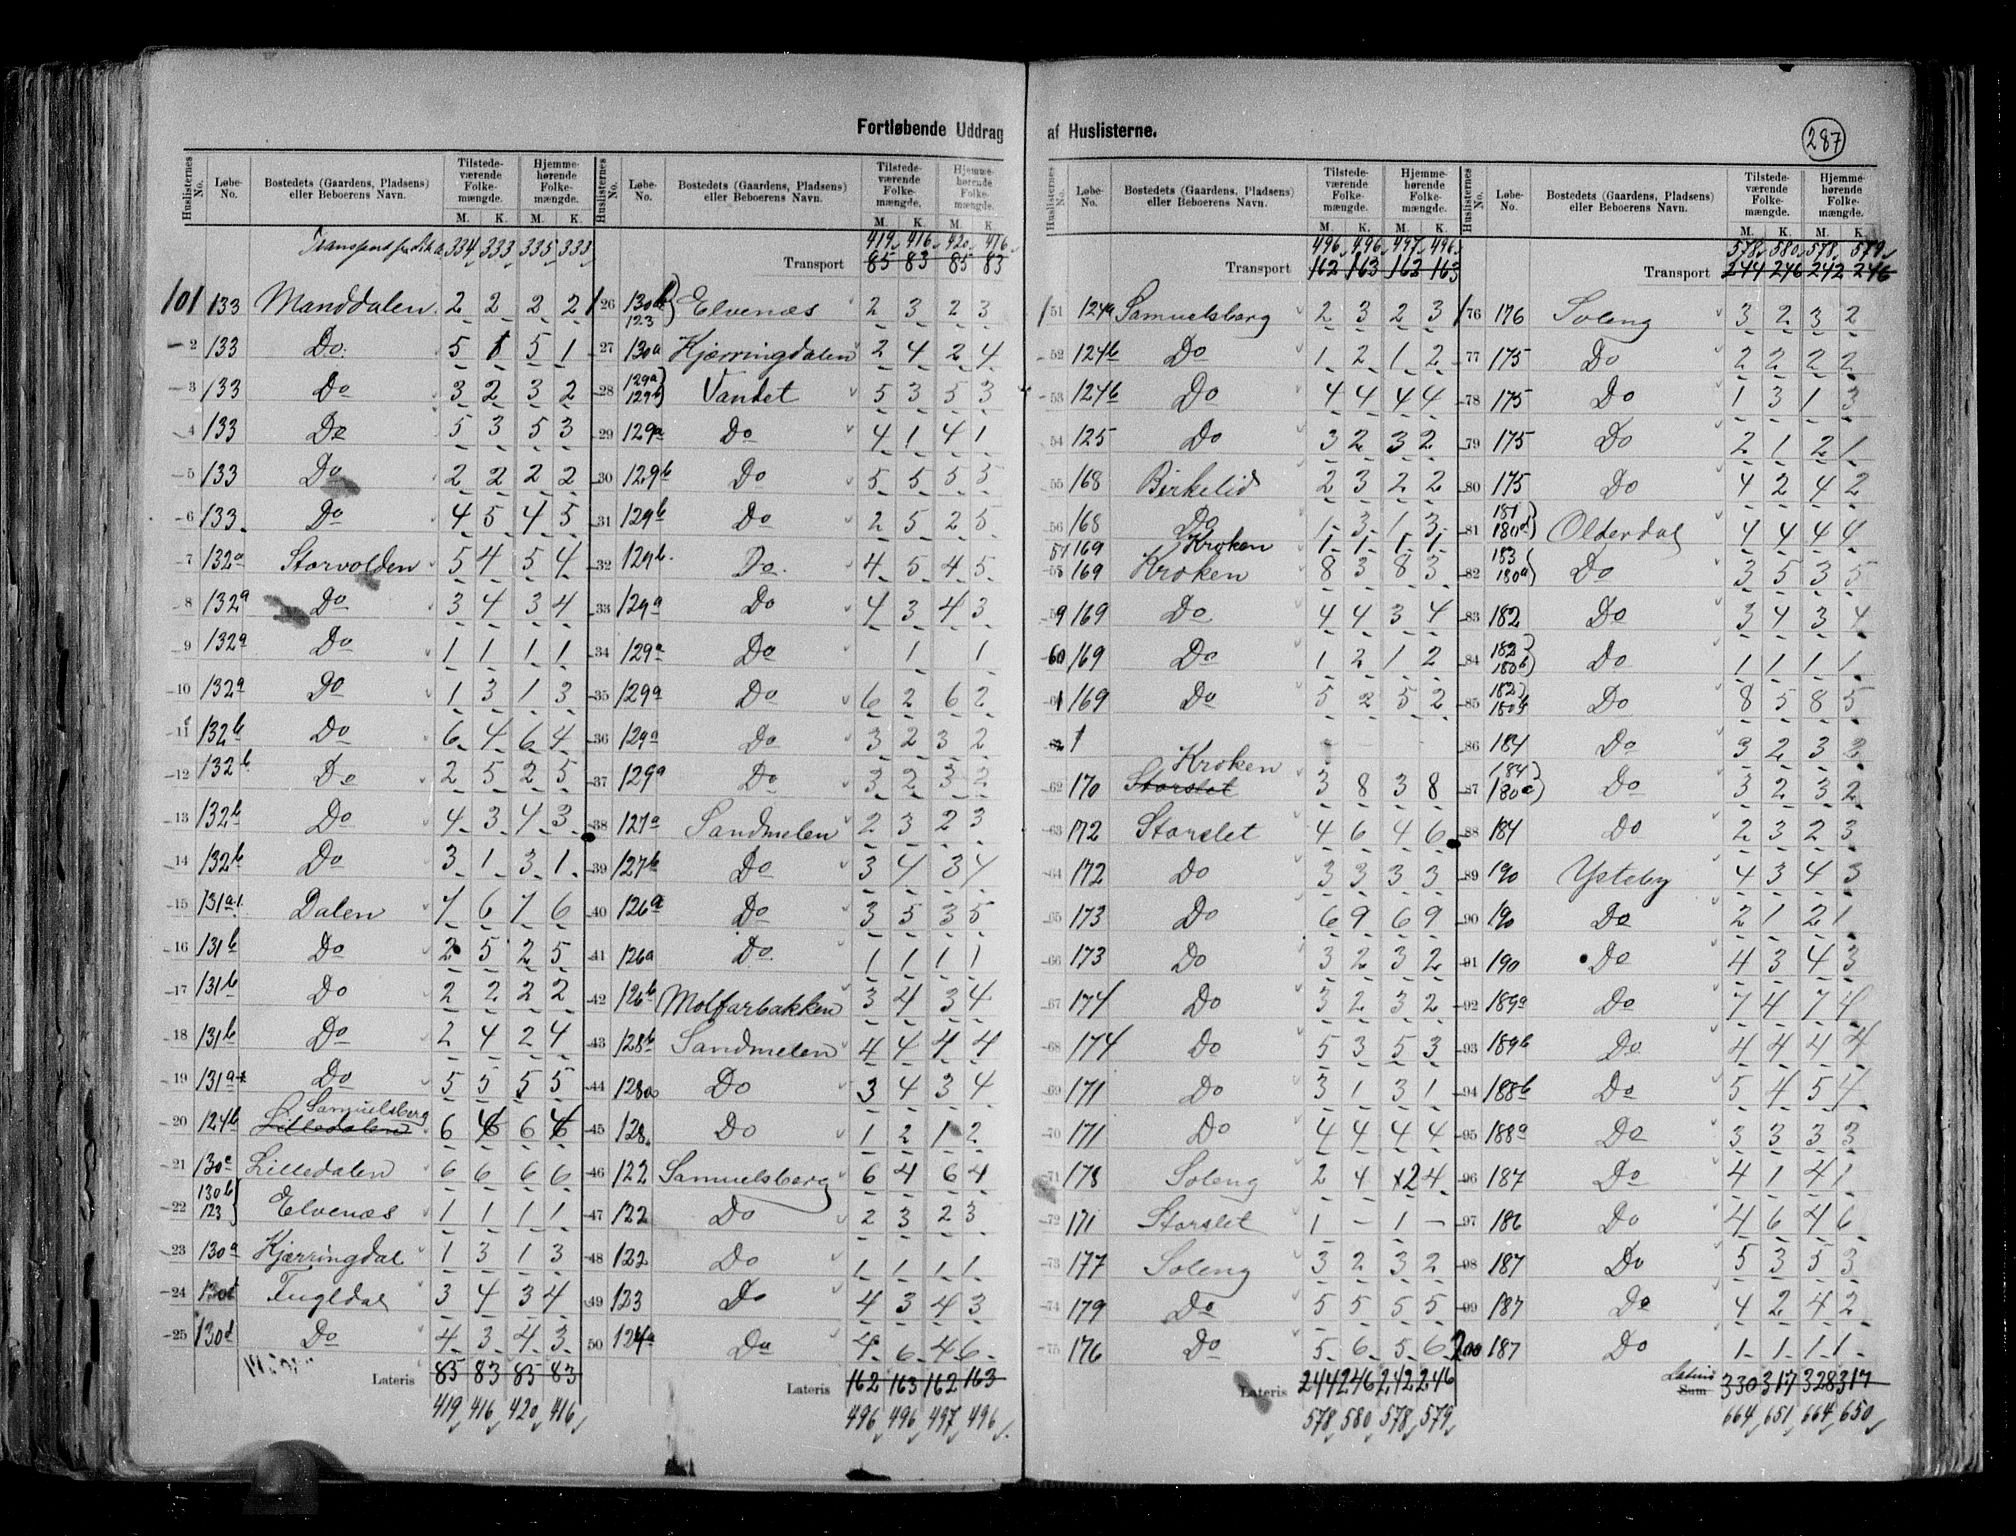 Fortløbende Uddrag af Huslisterne.
287
Huslisternes No. | Løbe-No. | Bostedets (Gaardens, Pladsens) eller Beboerens Navn. | Tilstedeværende Folkemængde. M. K. | Hjemmehørende Folkemængde. M. K.
334 333 335 333
101 133 Manddalen 2 2 2 2
2 133 Do 5 1 5 1
3 133 Do 3 2 3 2
4 133 Do 5 3 5 3
5 133 Do 2 2 2 2
6 133 Do 4 5 4 5
7 132a Storvolden 5 4 5 4
8 132a Do 3 4 3 4
9 132a Do 1 1 1 1
10 132a Do 1 3 1 3
11 132b Do 6 4 6 4
12 132b Do 2 5 2 5
13 132b Do 4 3 4 3
14 132b Do 3 1 3 1
15 131a1 Dalen 7 6 7 6
16 131b Do 2 5 2 5
17 131b Do 2 2 2 2
18 131b Do 2 4 2 4
19 131a Do 5 5 5 5
Samuelsberg
20 124b Lilledalen 6 6 6 6
21 130c Lilledalen 6 6 6 6
22 130b 123 Elvenæs 1 1 1 1
23 130a Kjærringdal 1 3 1 3
24 130d Fugldal 3 4 3 4
25 130d Do 4 3 4 3
Lateris 85 83 85 83
419 416 420 416
Huslisternes No. | Løbe-No. | Bostedets (Gaardens, Pladsens) eller Beboerens Navn. | Tilstedeværende Folkemængde. M. K. | Hjemmehørende Folkemængde. M. K.
419 416 420 416
Transport 85 83 85 83
126 130b 123 Elvenæs 2 3 2 3
27 130a Kjærringdalen 2 4 2 4
28 129a 129b Vandet 5 3 5 3
29 129a Do 4 1 4 1
30 129b Do 5 5 5 5
31 129b Do 2 5 2 5
32 129b Do 4 5 4 5
33 129a Do 4 3 4 3
34 129a Do 1 1
35 129a Do 6 2 6 2
36 129a Do 3 2 3 2
37 129a Do 3 2 3 2
38 127a Sandmelen 2 3 2 3
39 127b Do 3 4 3 4
40 126a Do 3 5 3 5
41 126a Do 1 1 1 1
42 126b Molfarbakken 3 4 3 4
43 128b Sandmelen 4 4 4 4
44 128a Do 3 4 3 4
45 128 Do 1 2 1 2
46 122 Samuelsberg 6 4 6 4
47 122 Do 2 3 2 3
48 122 Do 1 1 1 1
49 123 Do 4 3 4 3
50 124a Do 4 6 4 6
Lateris 162 163 162 163
496 496 497 496
Huslisternes No. | Løbe-No. | Bostedets (Gaardens, Pladsens) eller Beboerens Navn. | Tilstedeværende Folkemængde. M. K. | Hjemmehørende Folkemængde. M. K.
496 496 497 496
Transport 162 163 162 163
151 124a Samuelsberg 2 3 2 3
52 124b Do 1 2 1 2
53 124b Do 4 4 4 4
54 125 Do 3 2 3 2
55 168 Birkelid 2 3 2 2
56 168 Do 1 3 1 3
57 169 Kroken 1 1 1 1
58 169 Kroken 8 3 8 3
59 169 Do 4 4 3 4
60 169 Do 1 2 1 2
61 169 Do 5 2 5 2
Kroken
62 170 Storslet 3 8 3 8
63 172 Storslet 4 6 4 6
64 172 Do 3 3 3 3
65 173 Do 6 9 6 9
66 173 Do 3 2 3 2
67 174 Do 3 2 3 2
68 174 Do 5 3 5 3
69 171 Do 3 1 3 1
70 171 Do 4 4 4 4
71 178 Soleng 2 4 2 4
72 171 Storslet 1 – 1 –
73 177 Soleng 3 2 3 2
74 179 Do 5 5 5 5
75 176 Do 5 6 5 6
Lateris 244 246 242 246
578 580 578 579
Huslisternes No. | Løbe-No. | Bostedets (Gaardens, Pladsens) eller Beboerens Navn. | Tilstedeværende Folkemængde. M. K. | Hjemmehørende Folkemængde. M. K.
578 580 578 579
Transport 244 246 242 246
176 176 Soleng 3 2 3 2
77 175 Do 2 2 2 2
78 175 Do 1 3 1 3
79 175 Do 2 1 2 1
80 175 Do 4 2 4 2
81 181 180d Olderdal 4 4 4 4
82 183 180a Do 3 5 3 5
83 182 Do 3 4 3 4
84 182 180b Do 1 1 1 1
85 182 180b Do 8 5 8 5
86 184 Do 3 2 3 2
87 184 180a Do 3 2 3 2
88 184 Do 2 3 2 3
89 190 Ysteby 4 3 4 3
90 190 Do 2 1 2 1
91 190 Do 4 3 4 3
92 189a Do 7 4 7 4
93 189b Do 4 4 4 4
94 188b Do 5 4 5 4
95 188a Do 3 3 3 3
96 187 Do 4 1 4 1
97 186 Do 4 6 4 6
98 187 Do 5 3 5 3
99 187 Do 4 2 4 2
200 187 Do 1 1 1 1
Lateris
Sum 330 317 328 317
664 651 664 650